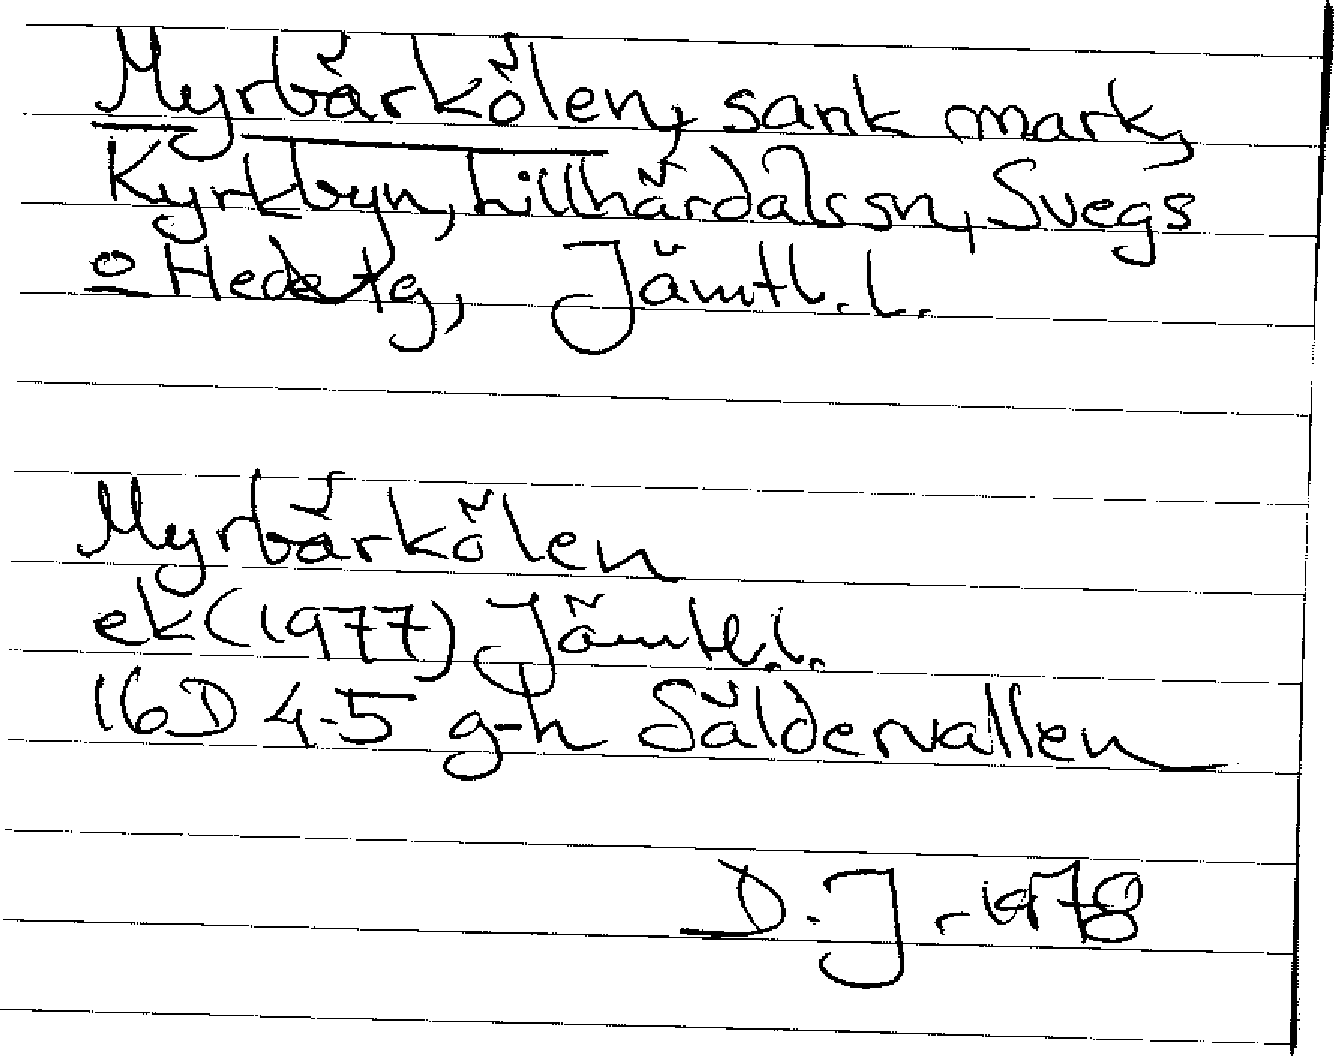 Myrbärkölen, sank mark,
Kyrkbyn, Lillhärdals sn, Svegs
o Hede tg, Jämtl. l.
Myrbärkölen
ek (1977) Jämtl. l.
16D 4-5 g-h Säldervallen
D. J -1978